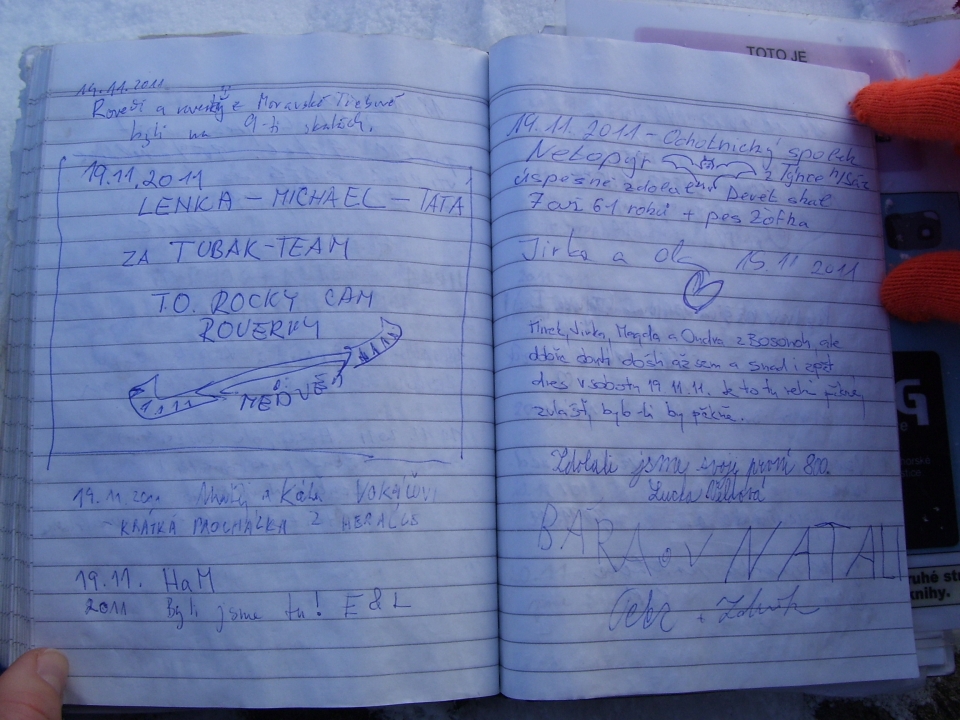 19.11.2011
Roveři a z Moravské Třebové
byli na 9-ti skalách.
19.11.2011
LENKA – MICHAEL – TATA
ZA TUBAK-TEAM
T.O. ROCKY CAM
ROVERKY
MEDVĚ
19.11 2011 a Káťa VOKÁČOVI
KRÁTKÁ PROCHÁZKA Z HERALCE
19.11. HaM
2011 Byli jsme tu! E & L
19.11.2011 – Ochotnický spolek
Netopýr z Týnce n/Sáz
úspěšně Devět skal
7 až 61 roků + pes Žofka
Jirka a 15.11 2011
Mirek, Jirka, Magda a Ondra z Bosonoh, ale
došli až sem a snad i zpět
dnes v sobotu 19.11.11. Je to tu
zvlášť, by
Zdolali jsme svoje první 800.
Lucka
BÁRA NATALI
Petr + Zdeněk
TOTO JE
G
ruhé str
knihy.